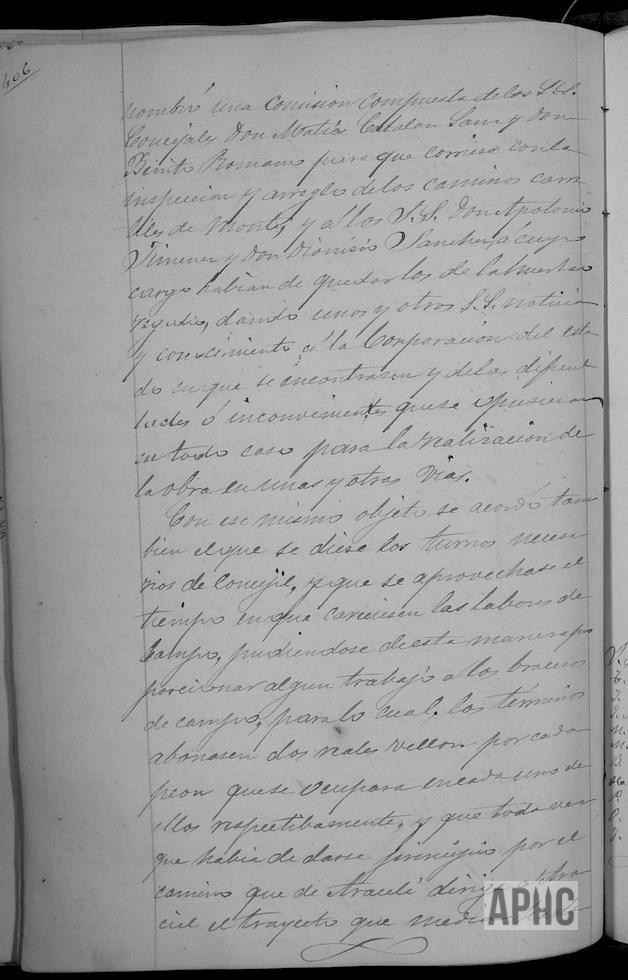 406
nombró una comision compuesta de los S.S.
Concejales Don Matias Catalan Sanz y Don
Benito Romano para que corriese con la
inspeccion y arreglo de los caminos carre
tiles de monte, y á los S.S. Don Apolonio
Jimenez y Don Dionisio Sanchez, á cuyo
cargo habian de quedar los de la huerta o
regadio, dando unos y otros S.S. noticia
y conocimiento á la Corporacion del esta
do en que se encontrasen y de las dificul
tades é inconvenientes que se opusieran
en todo caso para la realizacion de
la obra en unas y otras vias.
Con ese mismo objeto se acordó tam
bien el que se diese los turnos necesa
rios de concejil, y que se aprovechase el
tiempo en que careciesen las labores de
campo, pudiendose de esta manera pro
porcionar algun trabajo a los braceros
de campo, para lo cual, los términos
abonasen dos reales vellon por cada
peon que se ocupara en cada uno de
ellos respectibamente, y que toda vez
que habia de darse principio por el
camino que de Araceli dirige a
ciel el trayecto que media
APHC